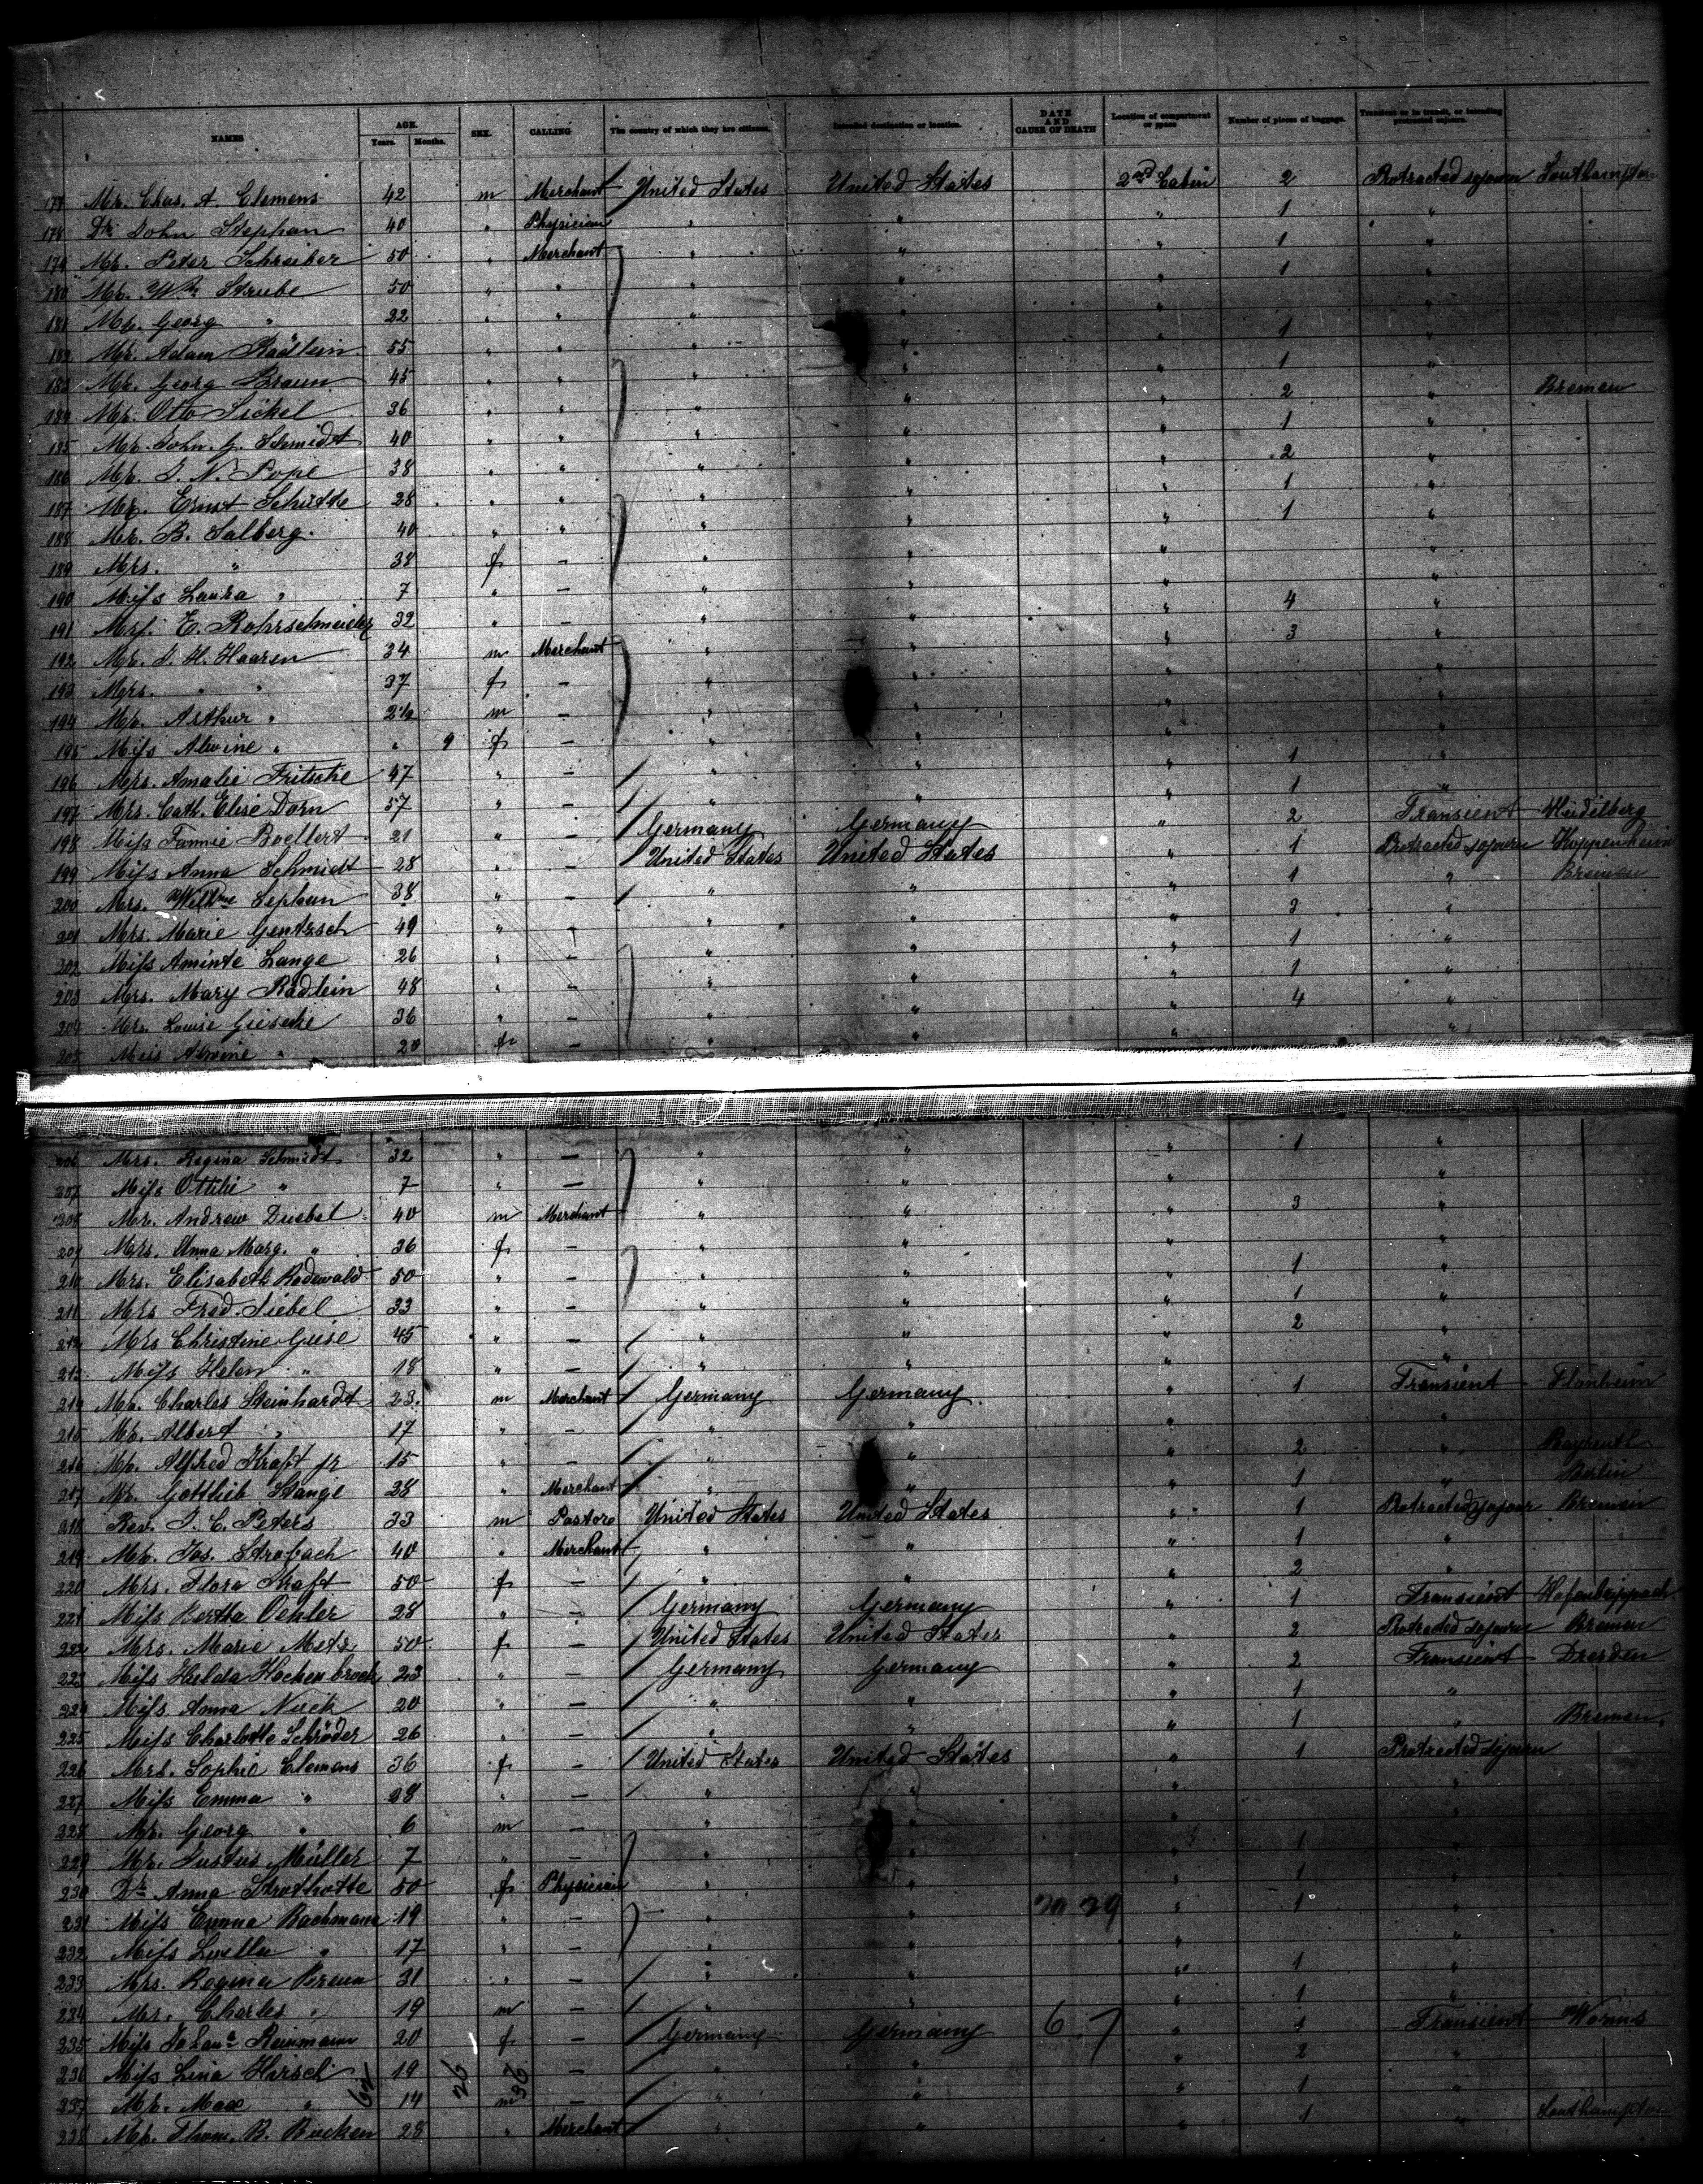 NAMES AGE. Years. Months. SEX. CALLING The country of which they are citizens. Intended destination or location. DATE AND CAUSE OF DEATH Location of compartment or space Number of pieces of baggage. Transient or in transit, or intending protracted sojourn.
177 Mr. Chas. A. Clemens 42 m Merchant United States United States 2nd Cabin 2 Protracted sojourn Southampton
178 Dr. John Stephan 40 " Physician " " " 1 "
179 Mr. Peter Schreiber 50 " Merchant " " " 1 "
180 Mr. Wm Strube 50 " " " " " 1 "
181 Mr. Georg " 22 " " " " " "
182 Mr. Adam Rädlein 55 " " " " " 1 "
183 Mr. Georg Braun 45 " " " " " 1 "
184 Mr. Otto Sickel 36 " " " " " 2 " Bremen
185 Mr. John G. Schmidt 40 " " " " " 1 "
186 Mr. J. N. Pope 38 " " " " " 2 "
187 Mr. Ernst Schütte 28 " " " " " 1 "
188 Mr. B. Salberg. 40 " " " " " 1 "
189 Mrs. " 38 f - " " " "
190 Miss Laura " 7 " - " " " "
191 Mrs. E. Rohrschneider 32 " - " " " 4 "
192 Mr. J. H. Haaren 34 m Merchant " " " 3 "
193 Mrs. " " 37 f - " " " "
194 Mr. Arthur " 2½ m - " " " "
195 Miss Alwine " " 9 f - " " " "
196 Mrs. Amalie Fritsche 47 " - " " " 1 "
197 Mrs. Cath. Elise Dorn 57 " - " " " 1 "
198 Miss Fannie Boellert 21 " - Germany Germany " 2 Transient Heidelberg
199 Miss Anna Schmidt 28 " - United States United States " 1 Protracted sojourn Heppenheim
200 Mrs. Wilhme 38 " - " " " 1 " Bremen
201 Mrs. Marie Gentzsch 49 " - " " " 3 "
202 Miss Aminte Lange 26 " - " " " 1 "
203 Mrs. Mary Rädlein 48 " - " " " 1 "
204 Mrs. Louise Gieseke 36 " - " " " 4 "
205 Miss Alwine " 20 f - " " " "
206 Mrs. Regina Schmidt 32 " - " " " 1 "
207 Miss Ottilie " 7 " - " " " "
208 Mr. Andrew Duebel 40 m Merchant " " " 3 "
209 Mrs. Anna Marg. " 36 f - " " " "
210 Mrs. Elisabeth Rodewald 50 " - " " " 1 "
211 Mrs Fred. Siebel 33 " - " " " 1 "
212 Mrs Christine Geise 45 " - " " " 2 "
213 Miss Helen " 18 " - " " " "
214 Mr. Charles Steinhardt 23. m Merchant Germany Germany " 1 Transient Flonheim
215 Mr. Albert " 17 " - " " " "
216 Mr. Alfred Kraft jr 15 " - " " " 2 " Bayreuth
217 Mr. Gottlieb Stange 28 " Merchant " " " 1 " Berlin
218 Rev. J. C. Peters 33 m Pastore United States United States " 1 Protracted sojour Bremen
219 Mr. Jos. Strobach 40 " Merchant " " " 1 "
220 Mrs. Flora Kraft 50 f - " " " 2 "
221 Miss Bertha Oehler 28 " - Germany Germany " 1 Transient
222 Mrs. Marie Metz 50 f - United States United States " 2 Protracted sojourn Bremen
223 Miss Hulda Hockenbrock 23 " - Germany Germany " 2 Transient Dresden
224 Miss Anna Nuck 20 " - " " " 1 "
225 Miss Charlotte Schröder 26 " - " " " 1 " Bremen.
226 Mrs. Sophie Clemens 36 f - United States United States " 1 Protracted sojourn
227 Miss Emma " 28 " - " " " "
228 Mr. Georg " 6 m - " " " "
229 Mr. Justus Müller 7 " - " " " 1 "
230 Dr. Anna Strothotte 50 f Physician " " " 1 "
231 Miss Emma Bachmann 19 " - " " " 1 "
232 Miss Luella " 17 " - " " " "
233 Mrs. Regina Braun 31 " - " " " 1 "
234 Mr. Charles " 19 m - " " " 1 "
235 Miss Johana Reinmann 20 f - Germany Germany 6 7 " 1 Transient Worms
236 Miss Lina Hirsch 19 " - " " " 2 "
237 Mr. Max " 14 m - " " " 1 "
238 Mr. Thom. B. Bucken 28 " Merchant " " " 1 " Southampton